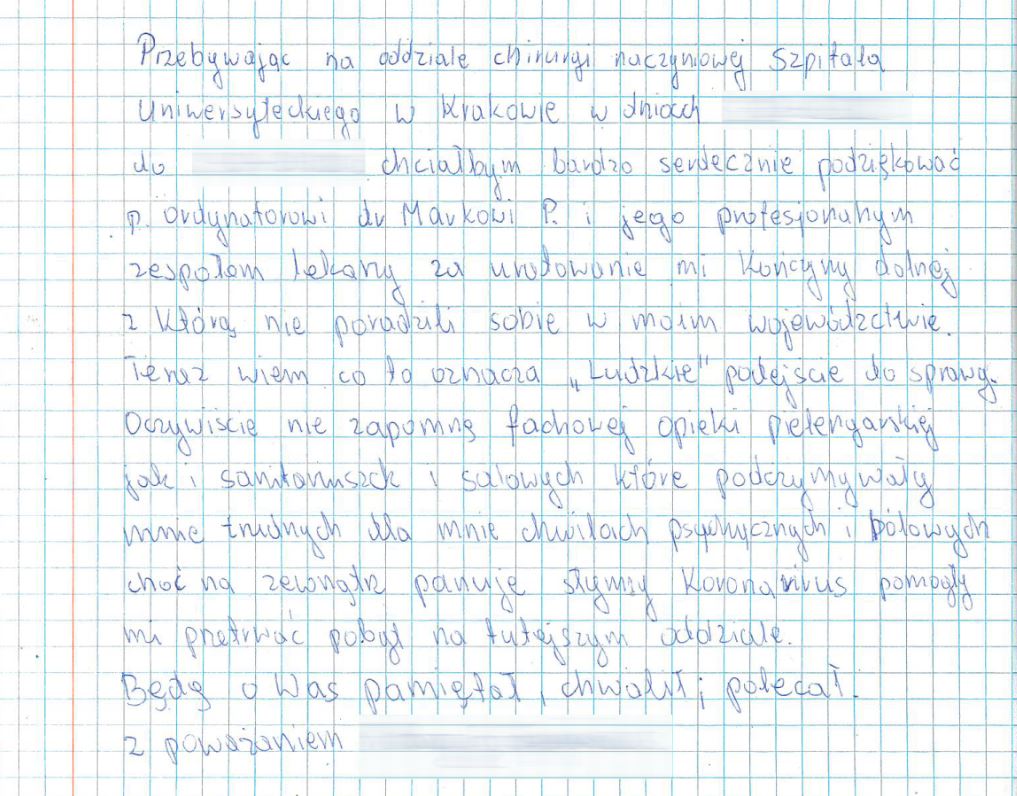 Przebywając na oddziale chirurgi naczyniowej Szpitala
Uniwersyteckiego w Krakowie w dniach
do chciałbym bardzo serdecznie podziękować
p. ordynatorowi dr Markowi P. i jego profesjonalnym
zespołem lekarzy za uratowanie mi Kończyny dolnej
z którą nie poradzili sobie w moim województwie.
Teraz wiem co to oznacza „Ludzkie" podejście do sprawy.
Oczywiście nie zapomnę fachowej opieki pielengarskiej
jak i sanitariuszek i salowych które podczymywały
mnie trudnych dla mnie chwilach psychycznych i bólowych
choć na zewnątrz panuje słynny Koronavirus pomogły
mi przetrwać pobyt na tutejszym oddziale.
Będę o Was pamiętał, chwalił i polecał.
z poważaniem